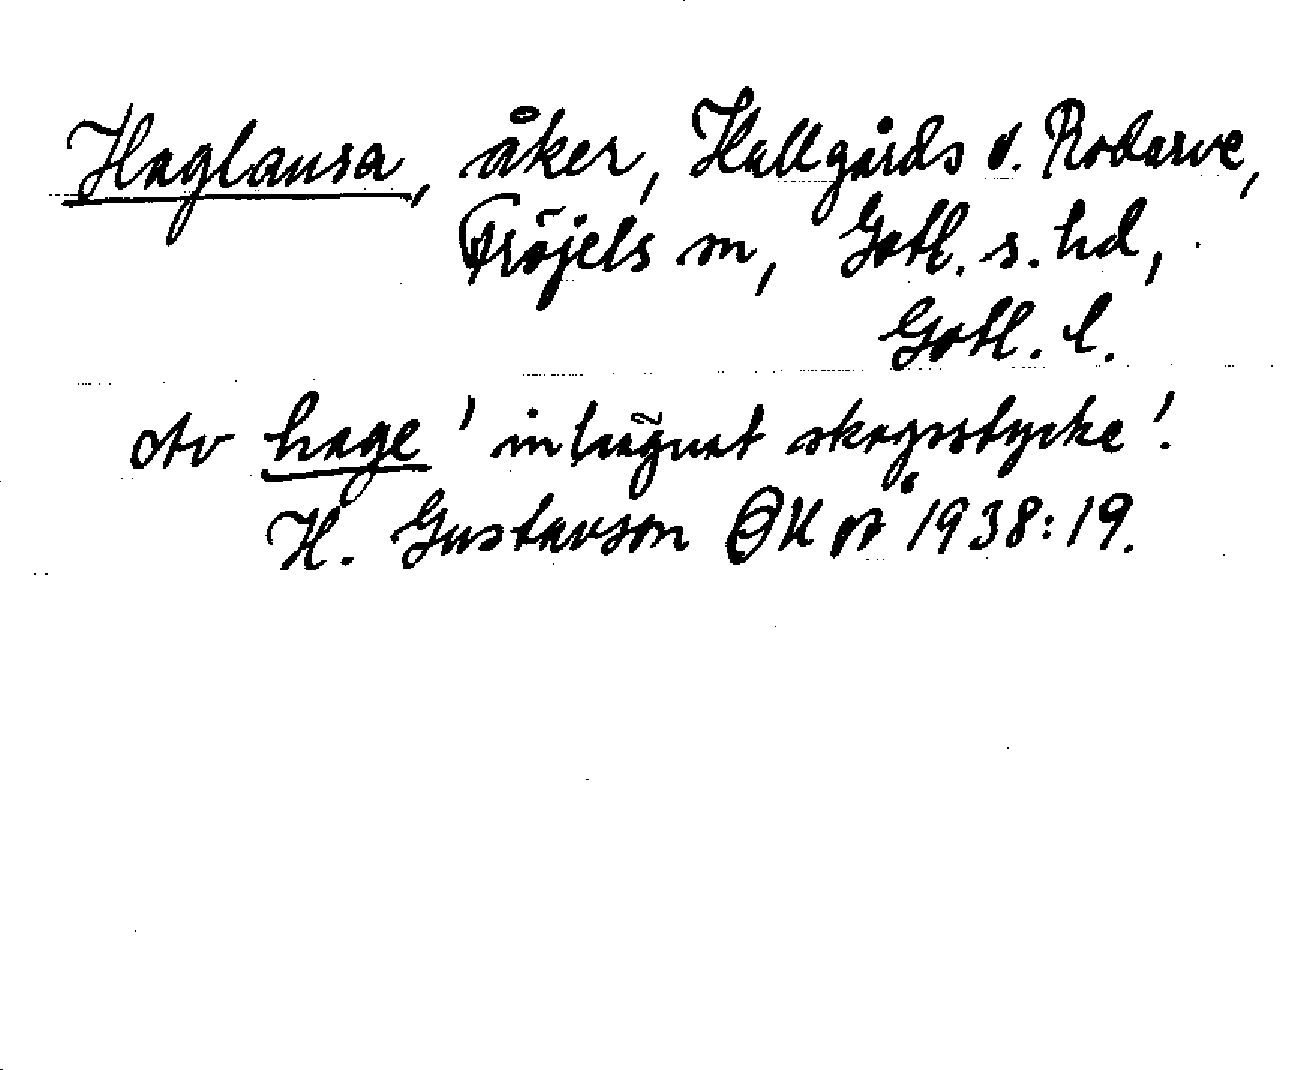 Haglausa, åker, Hallgårds o. Rodarve,
Fröjels sn, Gotl. s. hd,
Gotl. l.
Av hage 'inhägnat skogsstycke'.
H. Gustavson 1938:19.